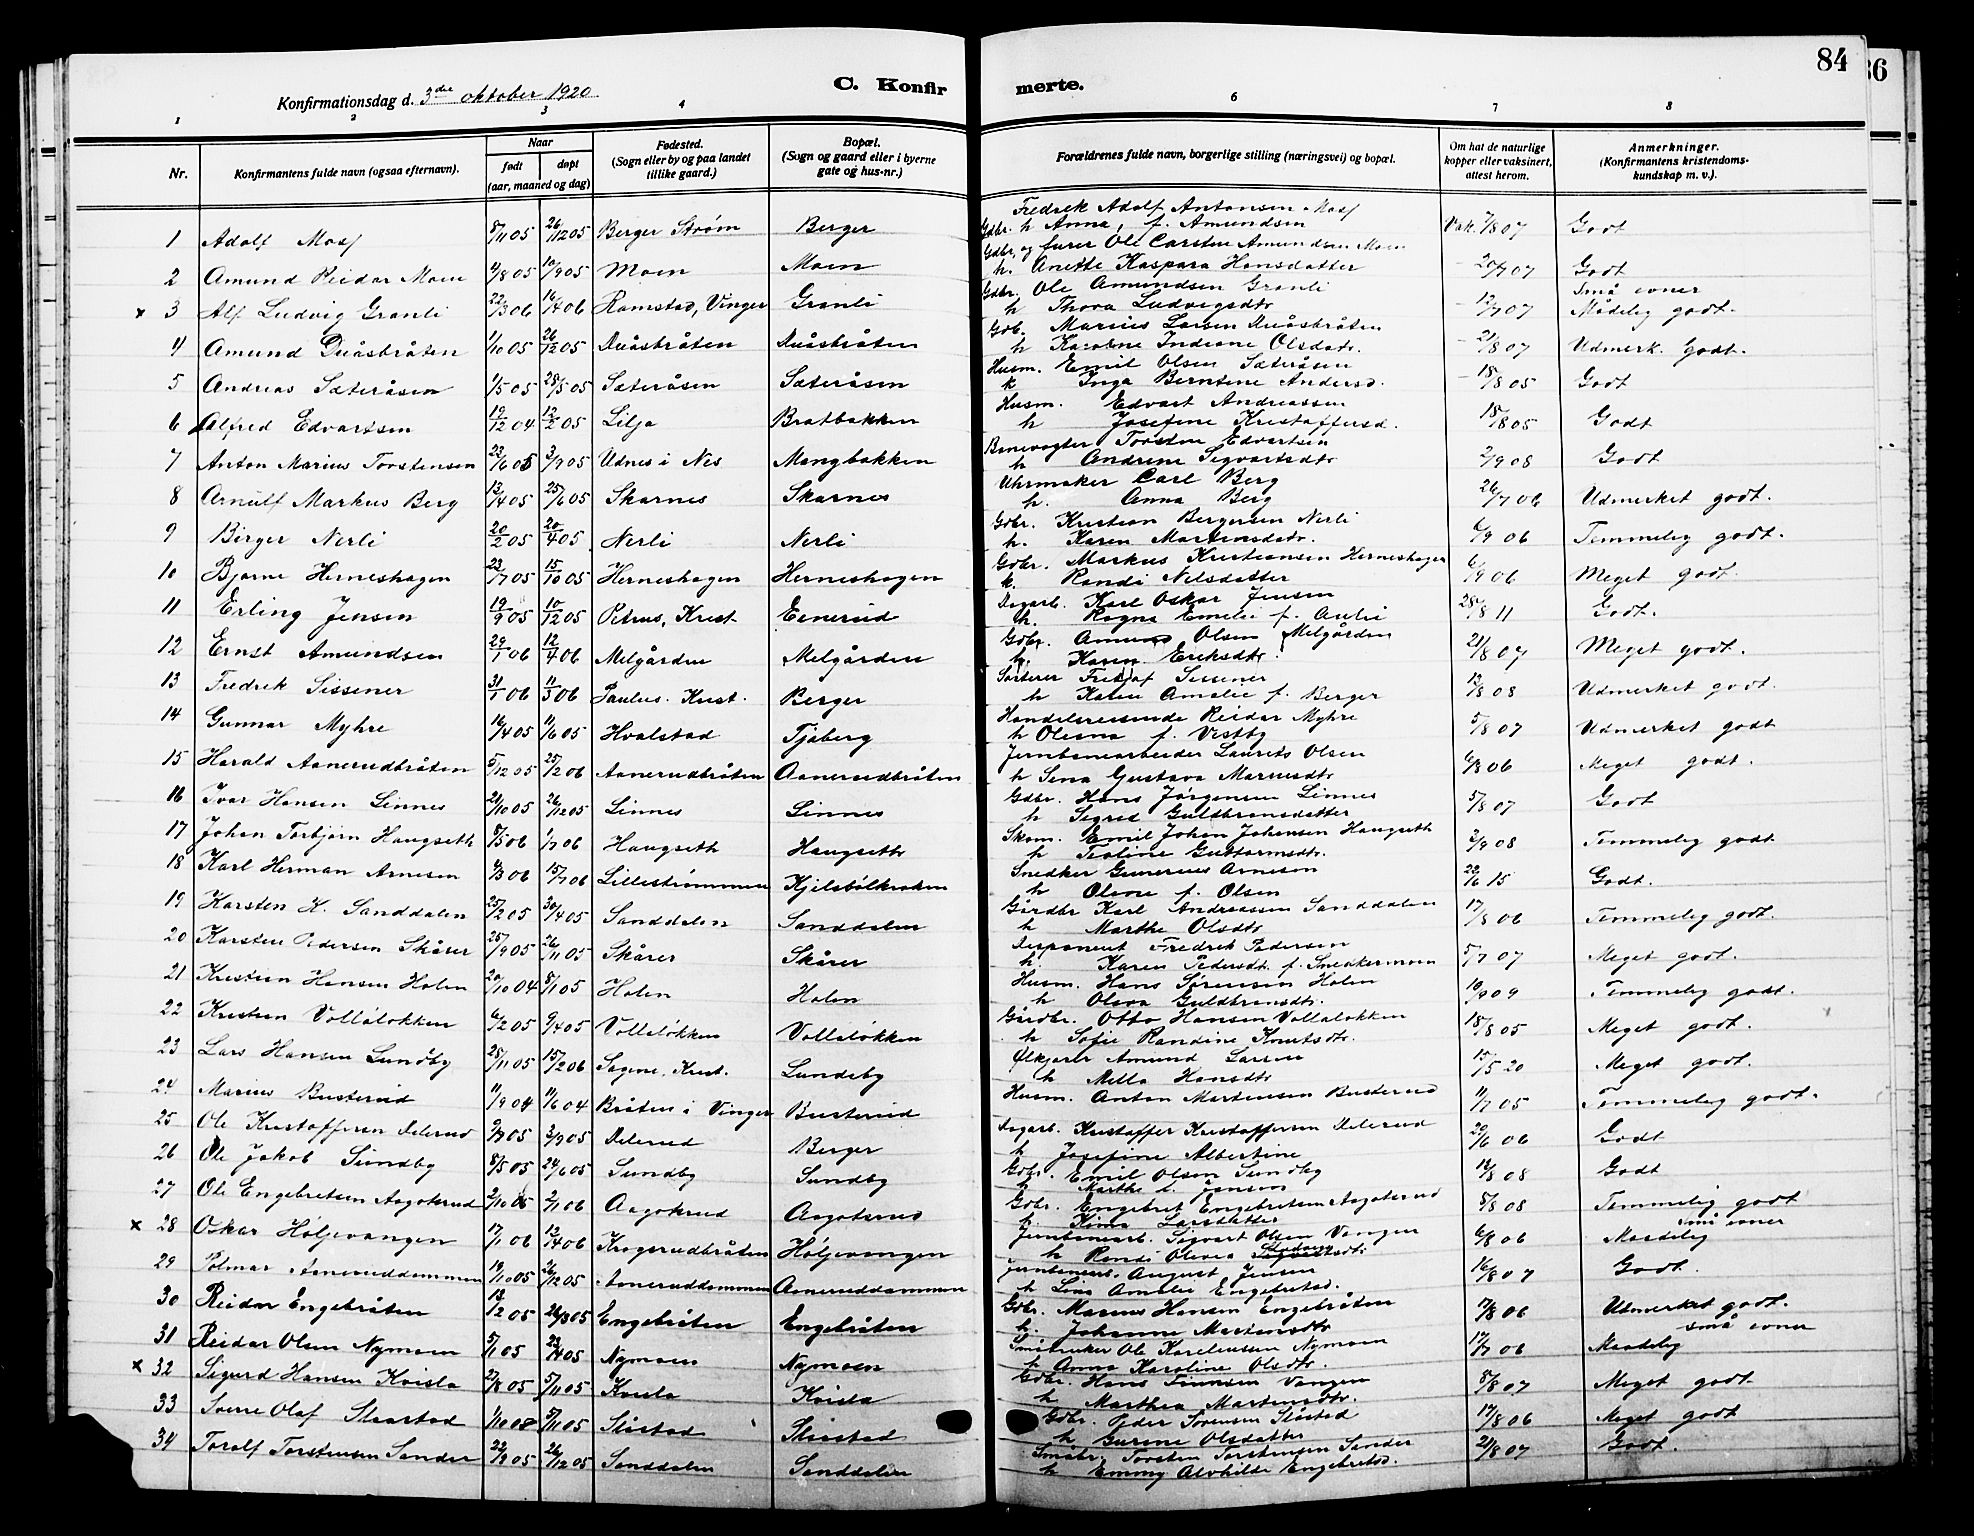 84
86
Konfirmationsdag d. 3die oktober 1920
C. Konfir
merte.
1 2 3 4 6 7 8
Nr.
Konfirmantens fulde navn (ogsaa efternavn).
Naar
født døpt
(aar, maaned og dag)
Fødested.
(Sogn eller by og paa landet
tillike gaard.)
Bopæl.
(Sogn og gaard eller i byerne
gate og hus-nr.)
Forældrenes fulde navn, borgerlige stilling (næringsvei) og bopæl.
Om hat de naturlige
kopper eller vaksinert,
attest herom.
Anmerkninger.
(Konfirmantens kristendoms-
kundskap m. v.).
Fredrik Adolf Antonsen Moss
1 Adolf Moss 8/11 05 26/12 05 Berger Strøm Berger Gdbr. h Anna, f. Amundsen Vak. 7/8 07 Godt
Gdbr. og furer Ole Carsten Amundsen Moen
2 Amund Reidar Moen 4/8 05 10/9 05 Moen Moen h. Anette Kaspara Hansdatter 20/7 07 Godt
Gdbr. Ole Amundsen Granli små evner
x 3 Alf Ludvig Granli 22/3 06 16/4 06 Ramstad, Vinger Granli h Thora Ludvigsdtr 12/7 07 Mådelig godt.
Gdb. Marius Larsen Duåsbråten
4 Amund Duåsbråten 1/10 05 26/12 05 Duåsbråten Duåsbråten h Karoline Indiane Olsdatr. 21/8 07 Udmerk. godt.
Husm. Emil Olsen Sæteråsen
5 Andreas Sæteråsen 1/5 05 28/5 05 Sæteråsen Sæteråsen k Inga Berntine Andersd. 18/8 05 Godt
Husm. Edvart Andreassen
6 Alfred Edvartsen 19/12 04 12/2 05 Lilja Bratbakken h Josefine Kristoffersd. 18/8 05 Godt
Banevogter Torsten Edvartsen
7 Anton Marius Torstensen 22/6 05 3/9 05 Udnes i Nes Mangbakken h Andrine Sigvartsdtr 2/9 08 Godt
Uhrmaker Carl Berg
8 Arnulf Markus Berg 13/4 05 25/6 05 Skarnes Skarnes h. Anna Berg 26/7 06 Udmerket godt.
Gdbr. Kristian Bergersen Nerli
9 Birger Nerli 20/2 05 20/4 05 Nerli Nerli h. Karen Martinsdatr. 6/9 06 Temmelig godt.
Gdbr. Markus Kristiansen Herneshagen
10 Bjarne Herneshagen 23/7 05 15/10 05 Herneshagen Herneshagen k. Randi Nilsdatter 6/9 06 Meget godt.
Dagarb. Karl Oskar Jensen
11 Erling Jensen 19/9 05 10/12 05 Petrus, Krist. Eenerud h. Ragna Emelie f. Aulie 28/8 11 Godt.
Gdbr. Amund Olsen Melgården
12 Ernst Amundsen 29/1 06 12/4 06 Melgården Melgården h. Karen Eriksdtr. 21/8 07 Meget godt.
Sissener
13 Fredrik Sissener 31/1 06 11/3 06 Paulus. Krist. Berger h Karen Amalie f. Berger 12/8 08 Udmerket godt.
Handelsreisende Reidar Myhre
14 Gunnar Myhre 16/4 05 11/6 05 Hvalstad Tjaberg h Olesna f. Vestby 5/8 07 Udmerket godt
Jernbanearbeider Laurits Olsen
15 Harald Aanerudbråten 5/12 05 25/2 06 Aanerudbråten Aanerudbråten h Sena Gustava Mariusdtr 6/8 06 Meget godt.
Gdbr. Hans Jørgensen Linnes
16 Ivar Hansen Linnes 21/10 05 26/12 05 Linnes Linnes h Sigrid Guldbransdatter 5/8 07 Godt
Skom. Emil Johan Johansen Haugseth
17 Johan Torbjørn Haugseth 8/5 06 1/7 06 Haugseth Haugseth h Teoline Guttormsdtr. 2/9 08 Temmelig godt.
Snedker Gunerius Arnesen
18 Karl Herman Arnesen 4/3 06 15/7 06 Lillestrømmen Kjelsbølkroken h Oline f. Olsen 22/6 15 Godt.
Gårdbr Karl Andreassen Sanddalen
19 Karsten K. Sanddalen 25/2 05 30/4 05 Sanddalen Sanddalen h Marthe Olsdtr 17/8 06 Temmelig godt.
Disponent Fredrik Pedersen
20 Karsten Pedersen Skårer 25/9 05 26/11 05 Skårer Skårer h. Karen Pedersdt. f. Snekkermoen 5/7 07 Meget godt.
Husm. Hans Sørensen Holen
21 Kristian Hansen Holen 20/10 04 8/1 05 Holen Holen h Olava Guldbransdtr. 10/9 09 Temmelig godt.
Gårdbr. Otto Hansen Volleløkken
22 Kristian Volleløkken 6/2 05 9/4 05 Volleløkken Volleløkken h Sofie Randine Knutsdtr. 18/8 05 Meget godt.
Ølkjører Amund Larsen
23 Lars Hansen Lundby 25/11 05 15/2 06 Sagene, Krist. Lundeby h Milla Hansdtr 15/5 20 Meget godt.
24 Marius Busterud 11/9 04 11/6 04 Bråten i Vinger Busterud Husm. Anton Martinsen Busterud 11/7 05 Temmelig godt.
Dagarb. Kristoffer Kristoffersen Delerud
25 Ole Kristoffersen Delerud 9/7 05 3/9 05 Delerud Berger h Josefine Albertine 29/6 06 Godt
Gdbr. Emil Olsen Sundby
26 Ole Jakob Sundby 8/5 05 24/6 05 Sundby Sundby h Marthe f. Jansen 12/8 08 Godt
Gdbr. Engebret Engebretsen Aagotsrud
27 Ole Engebretsen Aagotsrud 2/10 05 2/1 06 Aagotsrud Aagotsrud h. Kima Larsdatter 8/8 08 Temmelig godt
Jernbanearb. Sigvart Olsen Vangen små evner
x 28 Oskar Høljevangen 17/1 06 12/4 06 Krogsrudbråten Høljevangen h Randi Olivia 6/8 06 Maadelig
Jernbanearb. August Jensen
29 Polmar Aaneruddammen 19/10 05 26/12 05 Aanerudammen Aanerudammen h Lina Amalie Engebretsd. 16/8 07 Godt.
Gdbr. Marius Hansen Engebråten
30 Reidar Engebråten 12/12 05 26/3 05 Engebråten Engebråten h. Johanne Martinsdtr 17/8 06 Udmerket godt.
Småbruker Ole Karelinsen Nymoen små evner
31 Reidar Olsen Nymoen 5/1 05 23/4 05 Nymoen Nymoen h Anna Karoline Olsdtr. 12/7 06 Maadelig
Gdbr. Hans Finnsen Vangen
x 32 Sigurd Hansen Kvisla 27/8 05 5/11 05 Kvisla Kvisla h Marthea Martensdtr. 8/8 07 Meget godt
Gdbr. Peder Sørensen Slåstad
33 Sverre Olaf Slaastad 1/10 08 5/11 05 Slåstad Slåstad h Gurine Olsdatter 17/8 06 Meget godt
Småbr. Torsten Torstensen Sander
34 Toralf Torstensen Sander 22/9 05 26/12 05 Sanddalen Sanddalen h Emmy Alvhilde Engebretsd. 21/8 07 Godt.